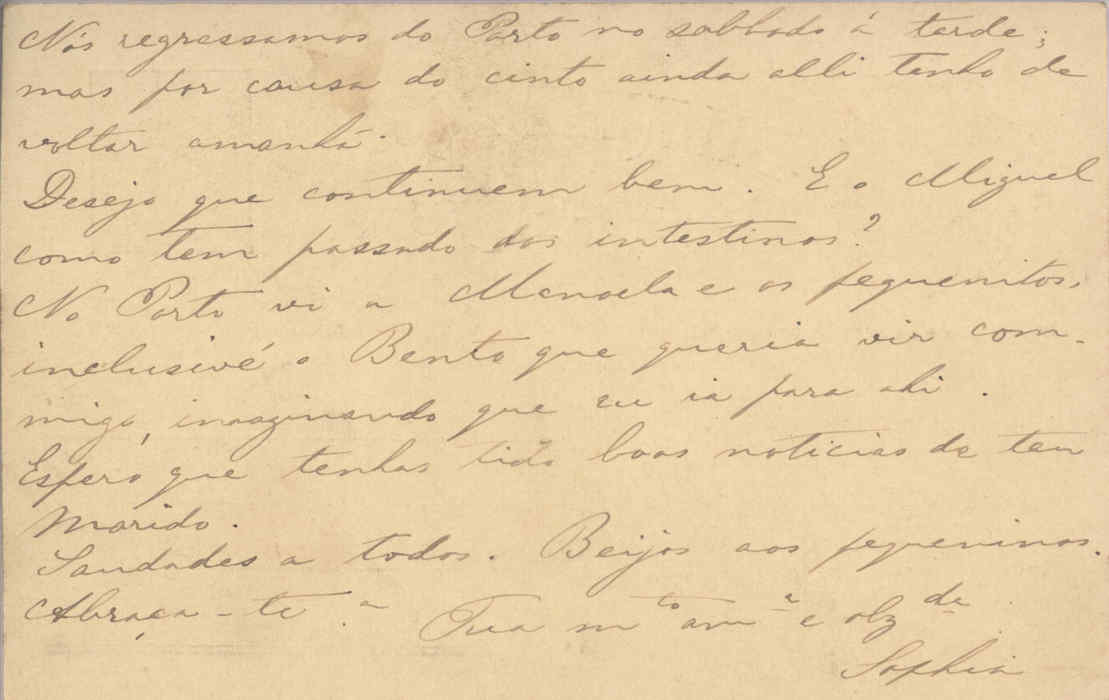 Nós regressamos do Porto no sabbado á tarde;
mas por causa do cinto ainda alli tenho de
voltar amanhã.
Desejo que continuem bem. E o Miguel
como tem passado dos intestinos?
No Porto vi a Manoela e os pequenitos,
inclusivé o Bento que queria vir com-
migo, imaginando que eu ia para ahi.
Espero que tenhas tido boas noticias de teu
Marido.
Saudades a todos. Beijos aos pequeninos.
Abraça-te a Tua mto amª e obgda
Sophia